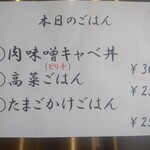 本日のごはん
○肉味噌キャベ丼
(ピリ辛)
¥3
○高菜ごはん
¥2
○たまごかけごはん
¥25